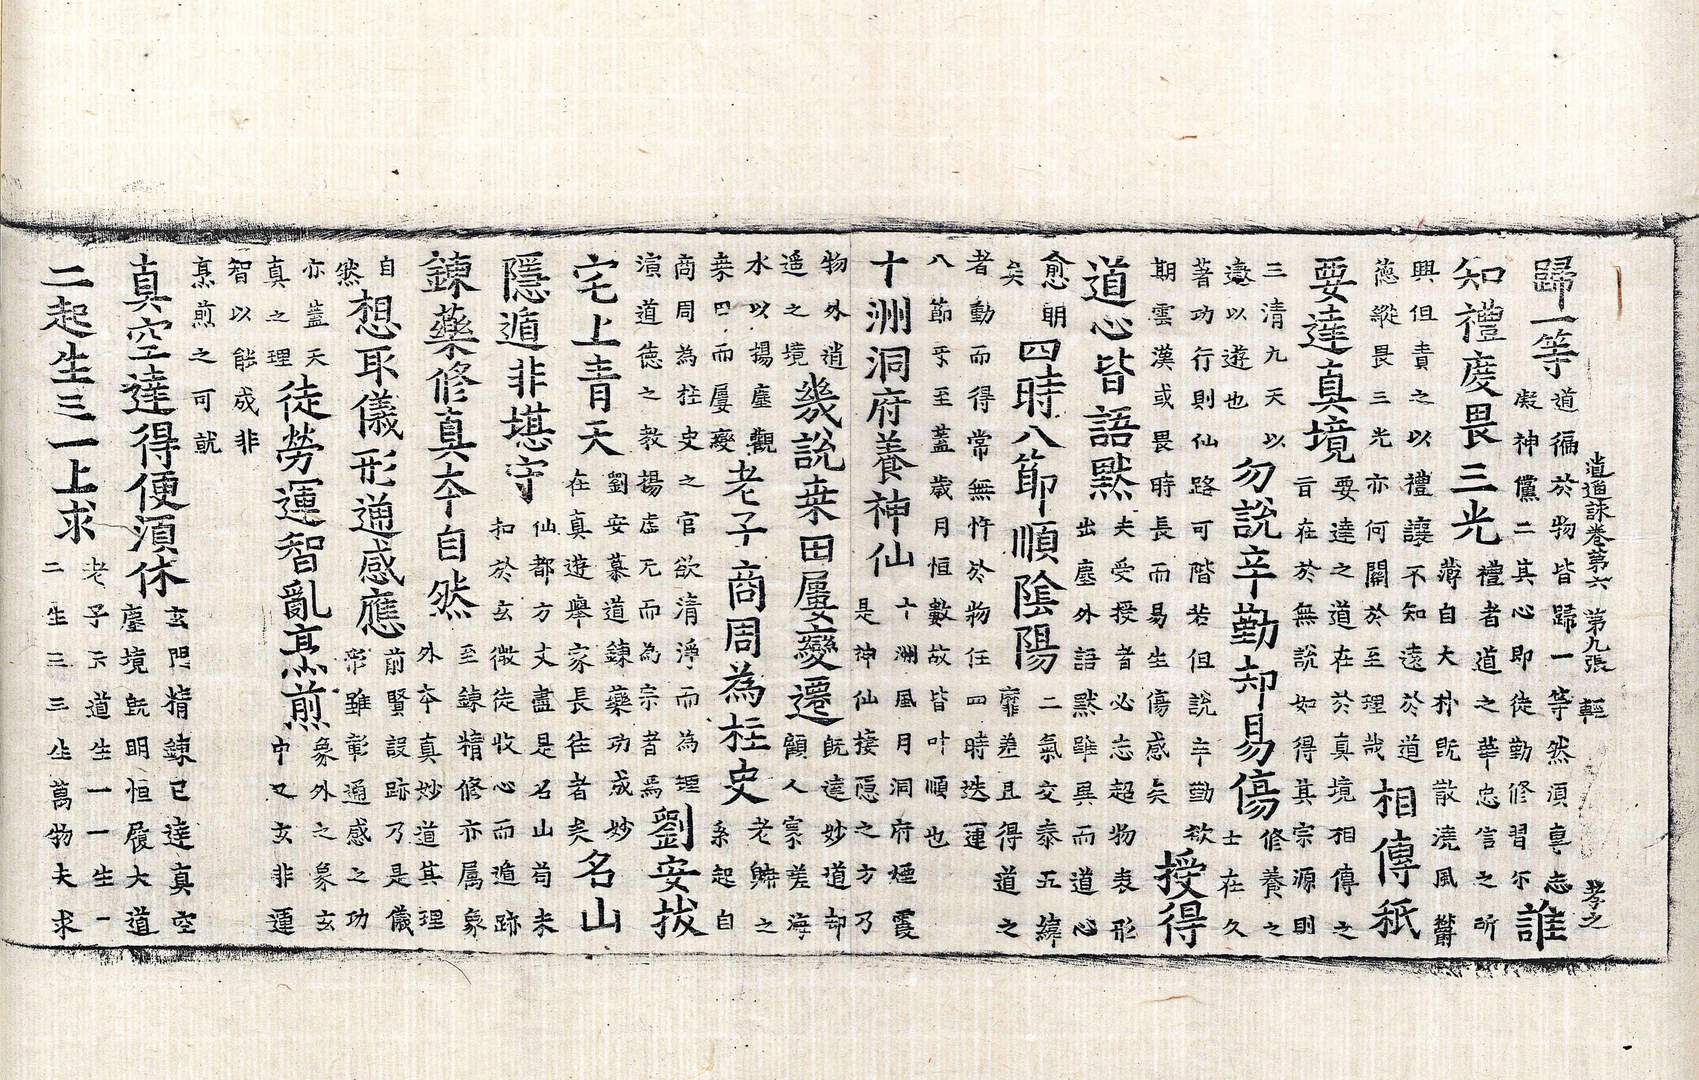 逍遥詠卷第六 第九張 輕 孝之
歸一等 道徧於物皆歸一等然須專志 凝神儻二其心即徒勤修習尔 誰
知禮度畏三光 禮者道之華忠信之所 薄自大朴既散澆風欝
興但責之以禮讓不知遠於道 德縱畏三光亦何關於至理哉 相傳秖
要達真境 要達之道在於真境相傳之 旨在於無說如得其宗源則
三清九天以 遨以遊也 勿說辛勤却易傷 修養之 士在久
著功行則仙路可階若但說辛勤欲 期雲漢或畏時長而易生傷感矣 授得
道心皆語默 夫受授者必忘超物表形 出塵外語默雖異而道心
愈明 矣 四時八節順陰陽 二氣交泰五緯 靡差且得道之
者動而得常無忤於物任四時迭運 八節來至蓋歲月恒數故皆叶順也
十洲洞府養神仙 十洲風月洞府煙霞 是神仙接隱之方乃
物外逍 遥之境 幾說桒田屢變遷 既達妙道却 顧人寰差海
水以揚塵觀 桒田而屢變 老子商周為柱史 老歸之 系起自
商周為柱史之官欲清淨而為理 演道德之教揚虛无而為宗者焉 劉安拔
宅上青天 劉安慕道鍊藥功成妙 在真遊舉家長往者矣 名山
隱遁非堪守 仙都方丈盡是名山苟未 扣於玄微徒收心而遁跡
鍊藥修真夲自然 至鍊精修亦属象 外夲真妙道其理
自 然 想耴儀形通感應 前賢設跡乃是儀 形雖彰通感之功
亦蓋天 真之理 徒勞運智亂烹煎 象外之象玄 中又玄非運
智以能成非 烹煎之可就
真空達得便須休 玄門精鍊已達真空 塵境既明恒履大道
二起生三一上求 老子云道生一一生 二生三三生萬物夫求